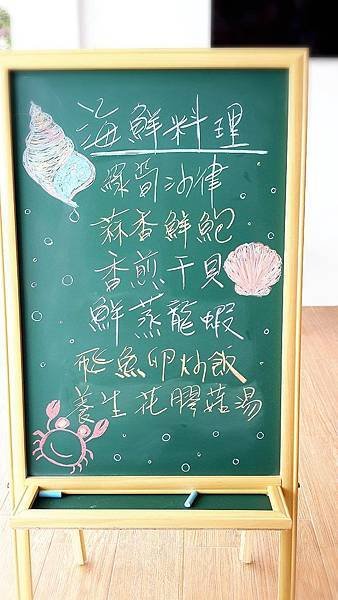 海鮮料理
綠筍沙律
蒜香鮮鮑
香煎干貝
鮮蒸龍蝦
飛魚卵炒飯
養生花膠菇湯